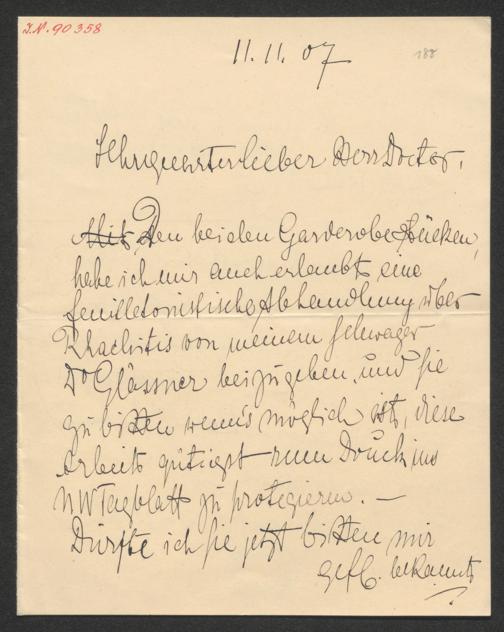 J.N. 90358
11.11.07
188
Sehrgeehrter lieber Herr Doctor.
Mit Den beiden Garderobestücken,
habe ich mir auch erlaubt eine
feuilletonistische Abhandlung über
Rhachitis von meinem Schwager
Dr Glässner beizugeben, und Sie
zu bitten wenn's möglich ist, diese
Arbeit gütigst zum Druck ins
NWTagblatt zu protegieren. —
Dürfte ich Sie jetzt bitten mir
gefl. bekannt